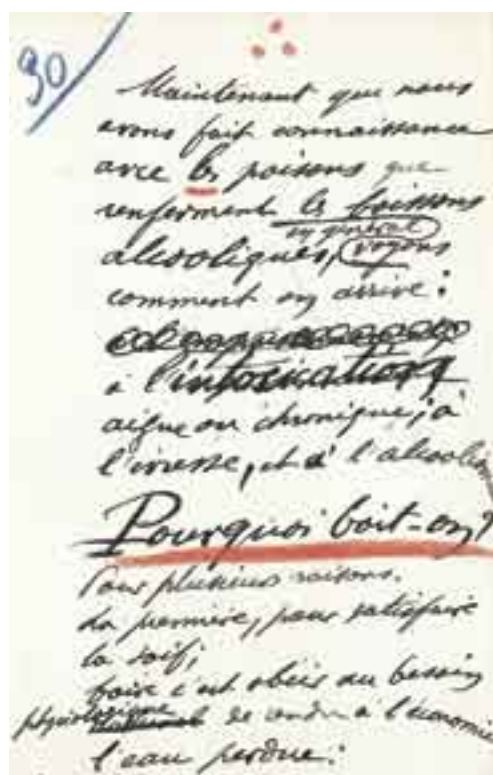 90
Maintenant que nous
avons fait connaissance
avec les poisons que
renferment les boissons
en général
alcooliques, voyons
comment on arrive :
à l'intoxication
aigue ou chronique ; à
l'ivresse, et à l'alcoolisme
Pourquoi boit-on ?
Pour plusieurs raisons.
La première, pour satisfaire
la soif ;
boire c'est obéir au besoin
physiologique de rendre à l'économie
l'eau perdue :